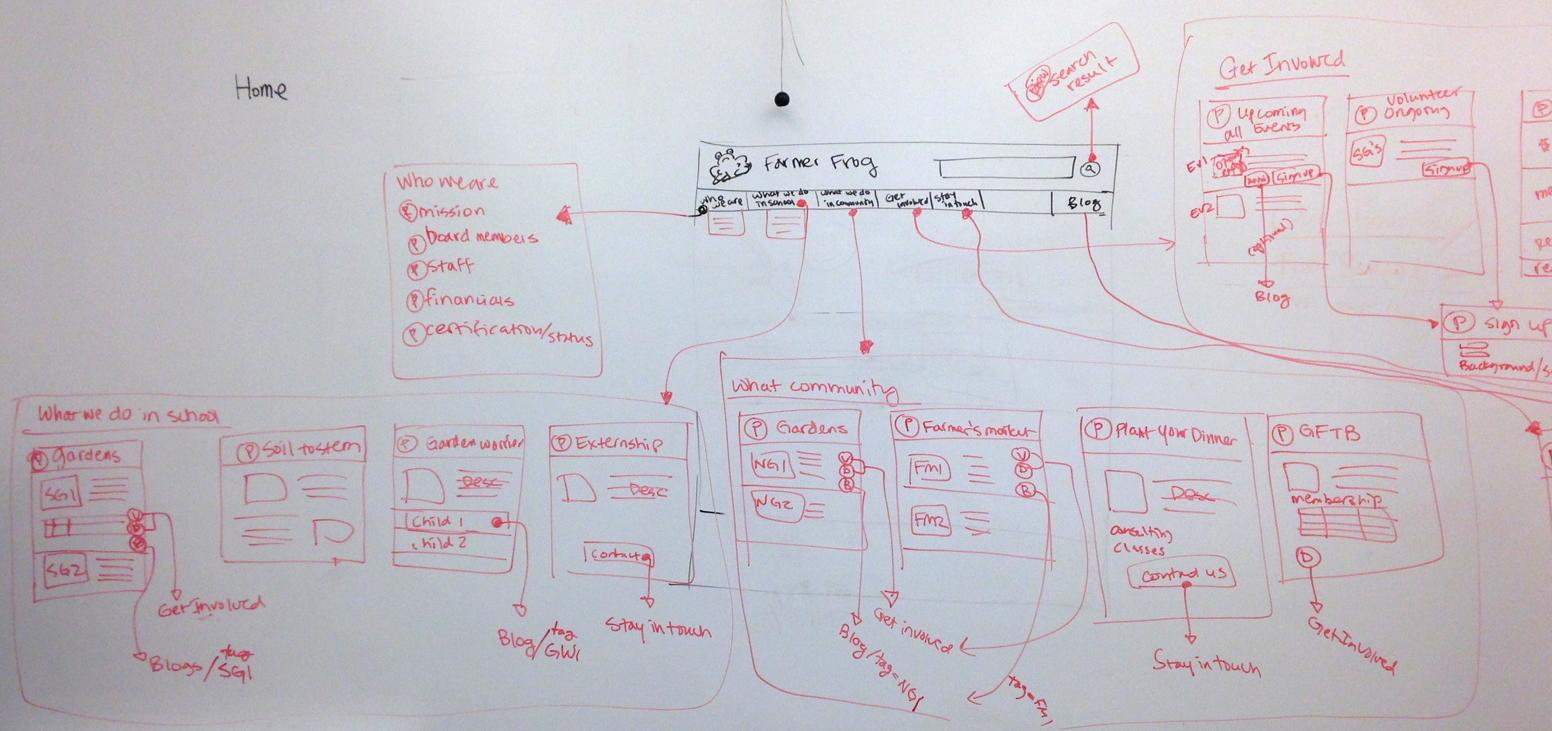 Home
search
result
Farmer Frog
Q
who
we are
what we do
in school
what we do
in community
Get
involved
stay
in touch
Blog
Who we are
P mission
P board members
P staff
P financials
P certification/status
Get Involved
P Upcoming
all Events
EV1
Signup
EV2
(optional)
Blog
P Volunteer
Ongoing
SG's
Signup
P
P Sign up
Background/s
What we do in school
P gardens
SG1
V
D
B
SG2
Get Involved
Blogs/tag
SG1
P Soil to stem
P Garden worker
Desc
Child 1
Child 2
Blog/tag
GW1
P Externship
Desc
Contact
Stay in touch
What community
P Gardens
NG1
V
D
B
NG2
Get involved
Blog/tag=NG1
P Farmer's market
FM1
V
D
B
FM2
tag=FM1
P Plant Your Dinner
Desc
consulting
classes
Contact us
Stay in touch
P GFTB
membership
D
Get Involved